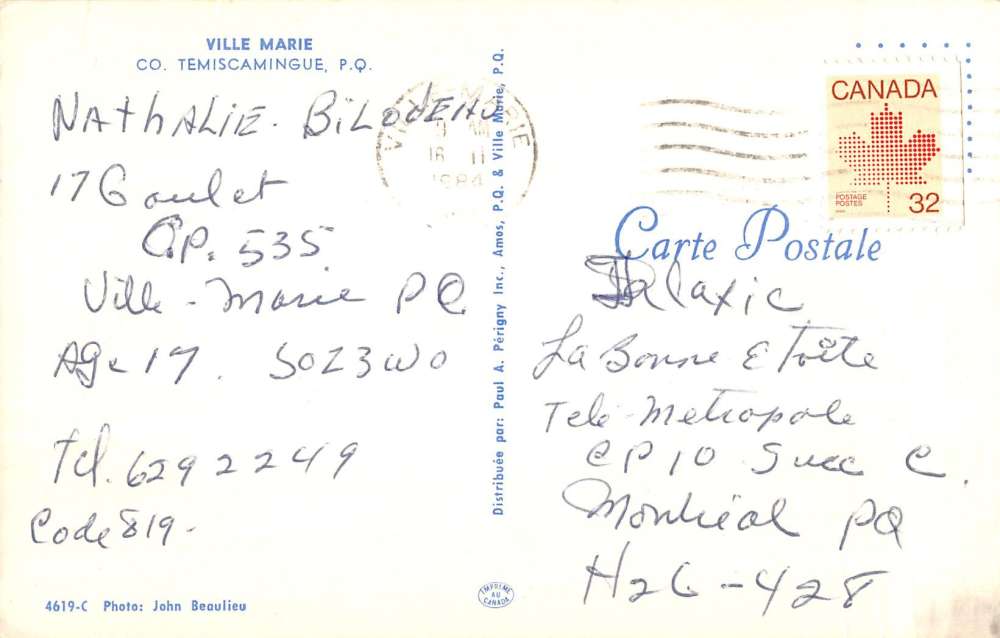 VILLE MARIE
CO. TEMISCAMINGUE, P.Q.
NAthALIE. BiLODEAU
17 Goulet
C.P. 535
Ville - Marie PQ
Age 17. S0Z3W0
Tel. 629 2249
Code 819-
4619-C Photo: John Beaulieu
Distribuée par: Paul A. Périgny Inc., Amos, P.Q. & Ville Marie, P.Q.
IMPRIMÉ
AU
CANADA
VILLE-MARIE
16 II
1984
CANADA
POSTAGE
POSTES
32
Carte Postale
La Bonne Etoile
Tele-Metropole
CP10 Succ C.
Montréal PQ
H2L-4Z8